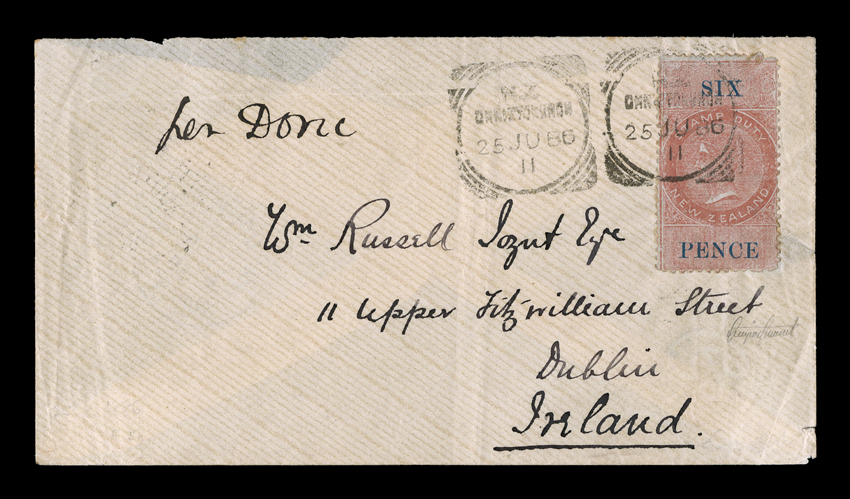 per Doric
N.Z
25 JU 86
11
N.Z
25 JU 86
11
SIX
STAMP DUTY
NEW ZEALAND
PENCE
Wm Russell
11 Upper Fitzwilliam Street
Dublin
Ireland.